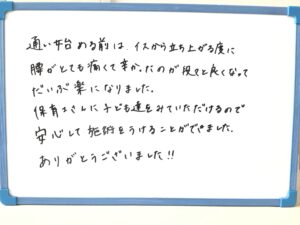 通い始める前は、イスから立ち上がる度に
腰がとても痛くて辛かったのが段々と良くなって
だいぶ楽になりました。
保育士さんに子ども達をみていただけるので
安心して施術をうけることができました。
ありがとうございました!!